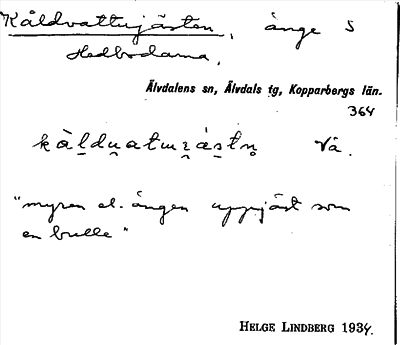 Kåldvattujästen, änge S
Hedbodarna,
Älvdalens sn, Älvdals tg, Kopparbergs län.
364
kàl̥du̯atuʀ̯ástn̥ Vä.
"myren el. ängen uppjäst som
en bulle"
HELGE LINDBERG 1934.